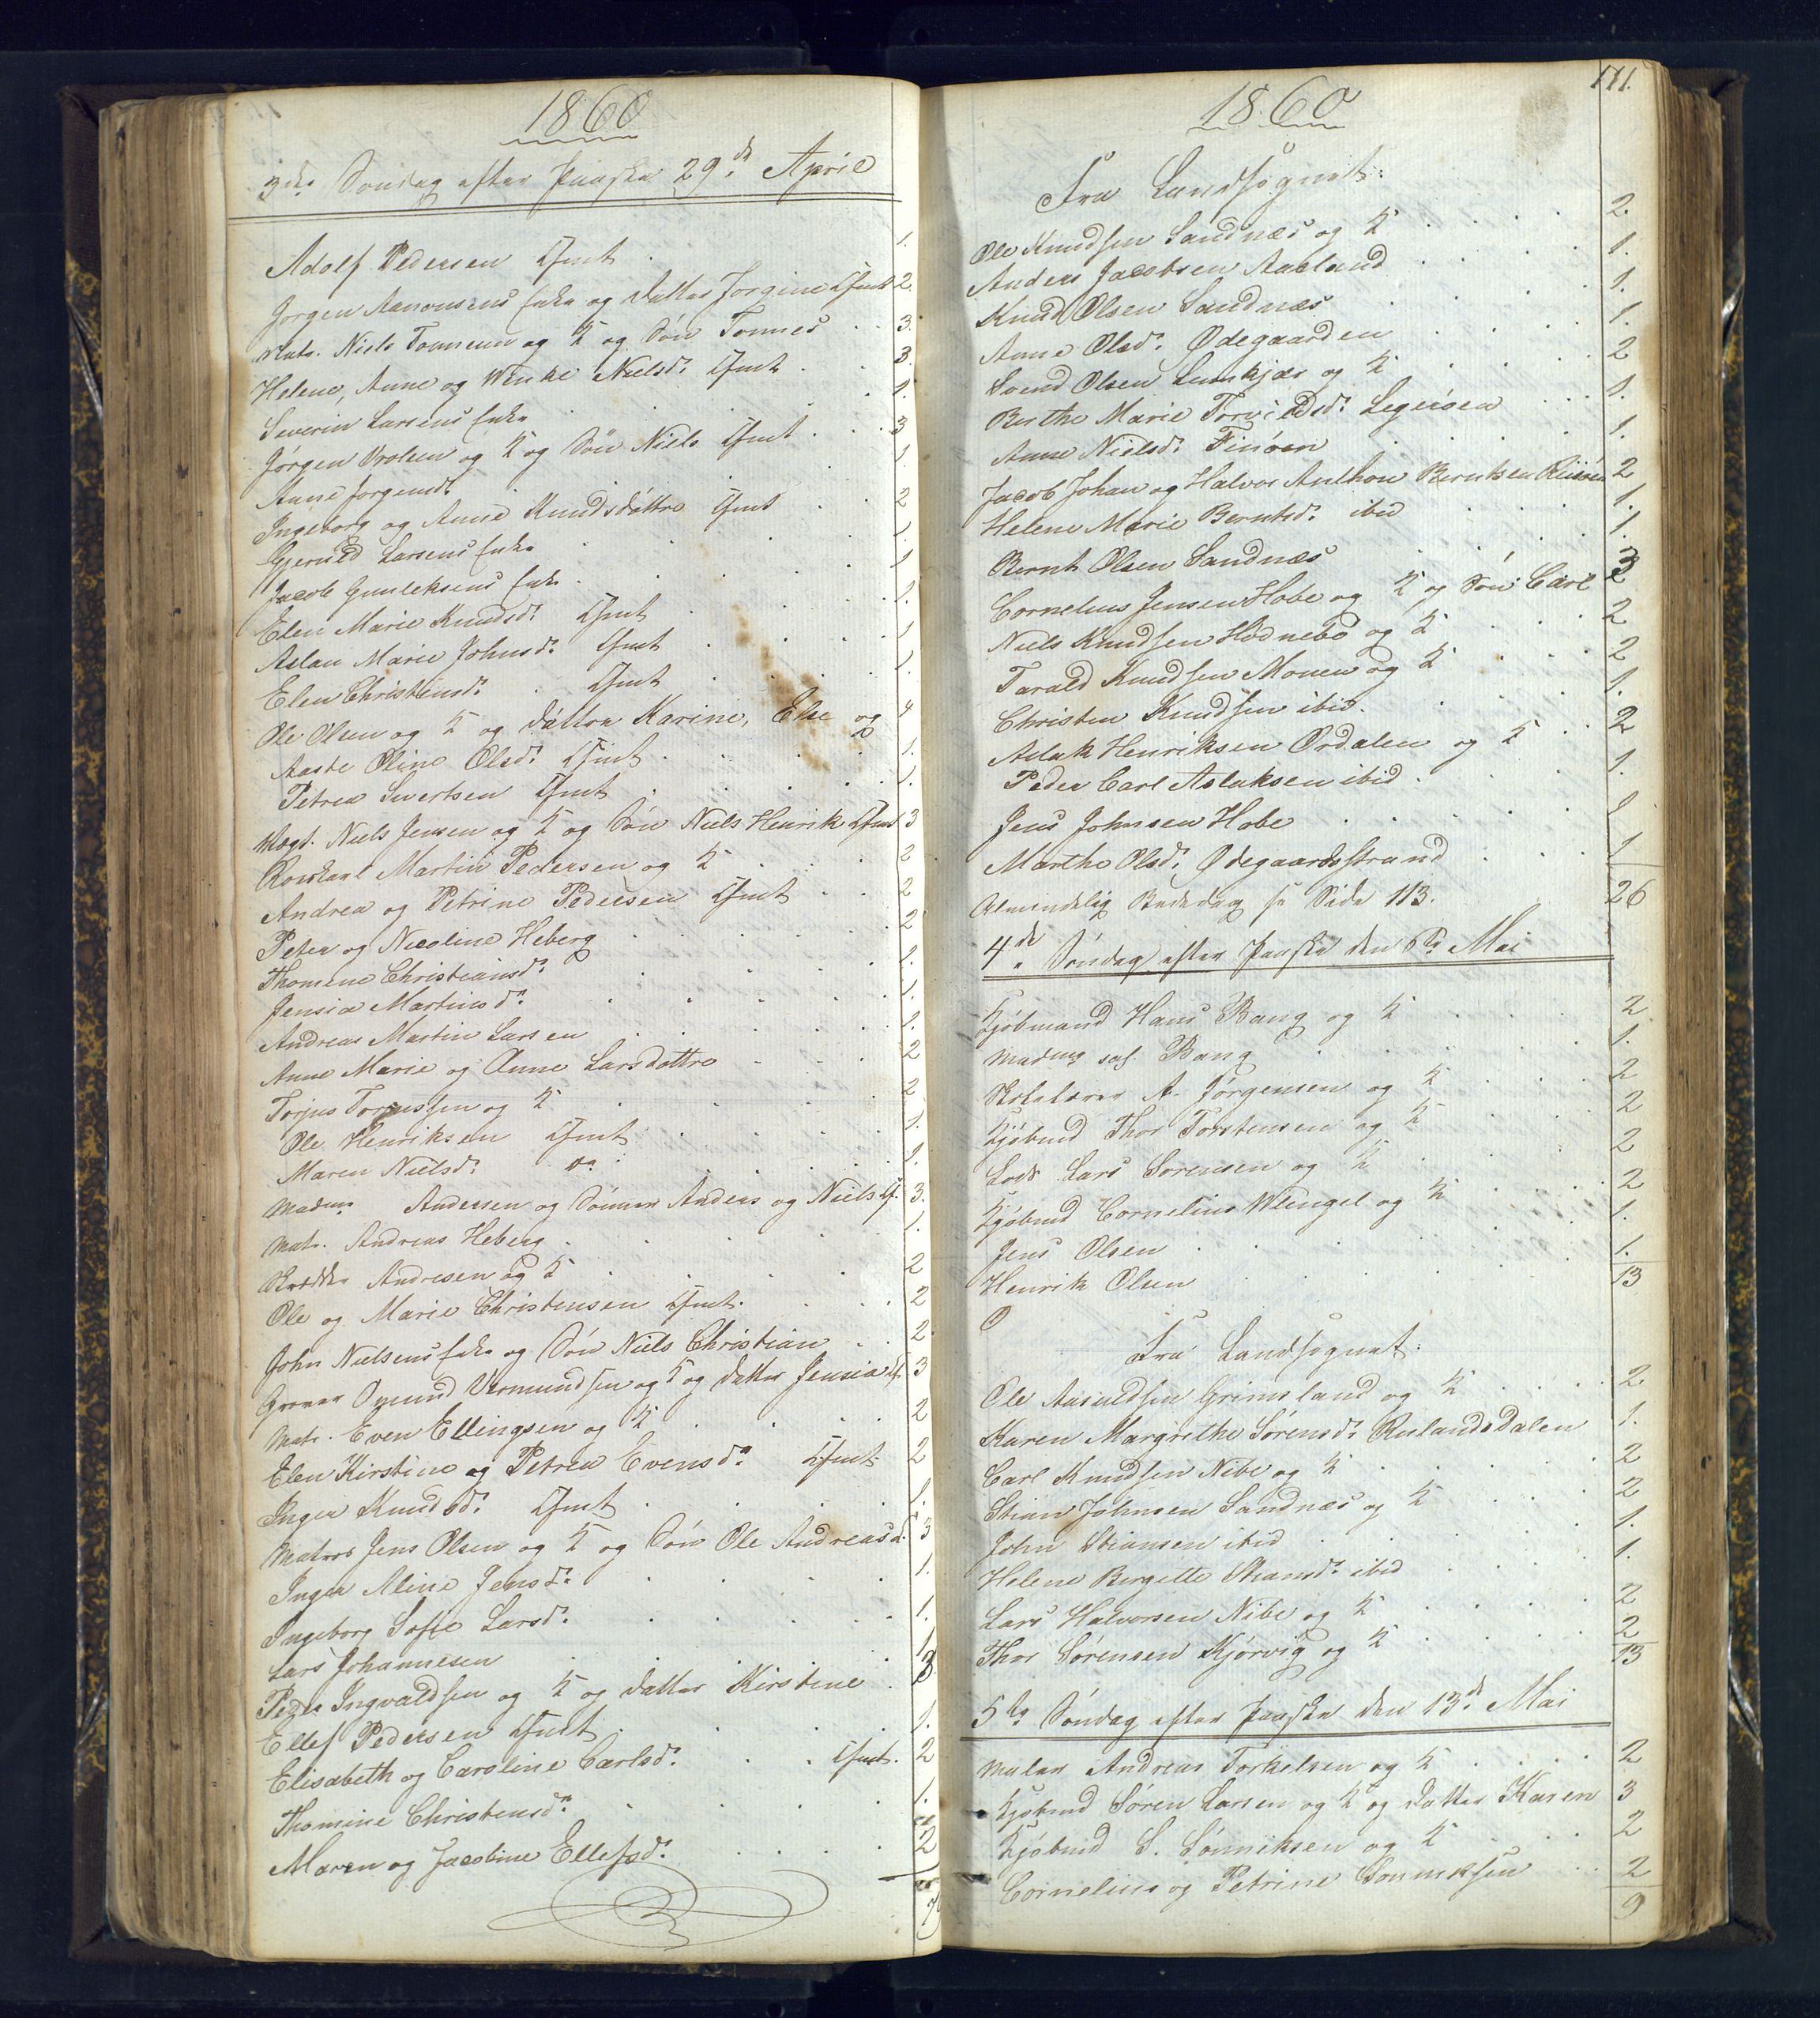 1860
3die Søndag efter Paaske 29de April
Adolf Pedersen Ifmt 1.
Jørgen Aanonsens Enke og Datter Jorgine Ifmt 2
Matr. Niels Tønnesen og K og Søn Tønnes 3.
Helene, Anne og Wenke Nielsd: Ifmt 3.
Severin Larsens Enke 1.
Jørgen Brolsen og K og Søn Niels Ifmt 3
Anne Jørgensd: 1.
Ingeborg og Anne Knudsdøttre Ifmt 2
Gjeruld Larsens Enke 1.
Jacob Gunleksens Enke 1
Elen Marie Knudsd: Ifmt 1.
Aslau Marie Johnsd: Ifmt 1
Elen Christensd: Ifmt 1.
Ole Olsen og K og Døttre Karine, Else og 4
Aaste Oline Olsd: Ifmt 1.
Petrea Sivertsen Ifmt 1.
Mags. Niels Jensen og K og Søn Niels Henrik Ifmt 3
Martin Pedersen og K 2
Andrea og Petrine Pedersen Ifmt 2
Peter og Nicoline Heberg 2
Thomine Christiansd: 1.
Jensia Martinsd: 1.
Andreas Martin Larsen 1.
Anne Marie og Anne Larsdøttre 2
Torjus Torjussen og K 2
Ole Henriksen Ifmt 1.
Maren Nielsd: do 1.
Madme Andersen og Sønner Anders og Niels If. 3.
Matr. Andreas Heberg 1.
Skrædder Andresen og K 2
Ole og Marie Christensen Ifmt. 2
John Nielsens Enke og Søn Niels Christian 2
Graver Omund Vermundsen og K og Datter Jensia If. 3
Matr. Even Ellingsen og K 2
Elen Kirstine og Petrea Evensd: Ifmt 2
Inger Knudsd: Ifmt 1.
Matros Jens Olsen og K og Søn Ole Andreas 3
Inger Aline Jensd: 1.
Ingeborg Sofie Larsd: 1.
Lars Johannesen 1
Peder Ingvaldsen og K og Datter Kirstine 3
Ellef Pedersen Ifmt 1.
Elisabeth og Caroline Carlsd: Ifmt. 2
Thomine Christensd: 1.
Maren og Jacobine Ellefsd: 2
1860
171.
Fra Landsognet:
Ole Knudsen Sandnæs og K 2.
Anders Jacobsen Aaeland 1.
Knud Olsen Sandnæs 1.
Anne Olsd: Ødegaarden 1.
Svend Olsen Lunkjær og K 2
Berthe Marie Torvildsd: Legeisen 1.
Anne Nielsd: Finøen 1.
Jacob Johan og Halvor Anthon Berntsen Riisøen 2
Helene Marie Berntsd: ibid 1.
Bernt Olsen Sandnæs 1.
Cornelius Jensen Hobe og K og Søn Carl 3
Niels Knudsen Hødnebø og K 2
Tarald Knudsen Monen og K 2
Christen Knudsen ibid. 1.
Aslak Henriksen Ørdalen og K 2
Peder Carl Aslaksen ibid. 1.
Jens Johnsen Hobe 1
Marthe Olsd: Ødegaardsstrand 1
Almindelig Bededag se Side 113. 26
4de Søndag efter Paaske den 6te Mai
Kjøbmand Hans Bang og K 2
Madme sal. Bang 1.
Skolelærer A. Jørgensen og K 2
Kjøbmd Thor Torstensen og K 2
Lods Lars Sørensen og K 2
Kjøbmd Cornelius Wengel og K 2
Jens Olsen 1.
Henrik Olsen 1.
13
Fra Landsognet:
Ole Aasuldsen Grimsland og K 2
Karen Margrethe Sørensd: Rulandsdalen 1.
Carl Knudsen Nibe og K 2
Stian Johnsen Sandnæs og K 2
John Stiansen ibid 1.
Helene Birgitte Stiansd: ibid 1.
Lars Halvorsen Nibe og K 2
Thor Sørensen Kjørvig og K 2
13
5te Søndag efter Paaske den 13de Mai
Maler Andreas Torkelsen og K 2
Kjøbmd Søren Larsen og K og Datter Karen 3
Kjøbmd S. Sønniksen og K 2
Cornelius og Petrine Sønniksen 2
9